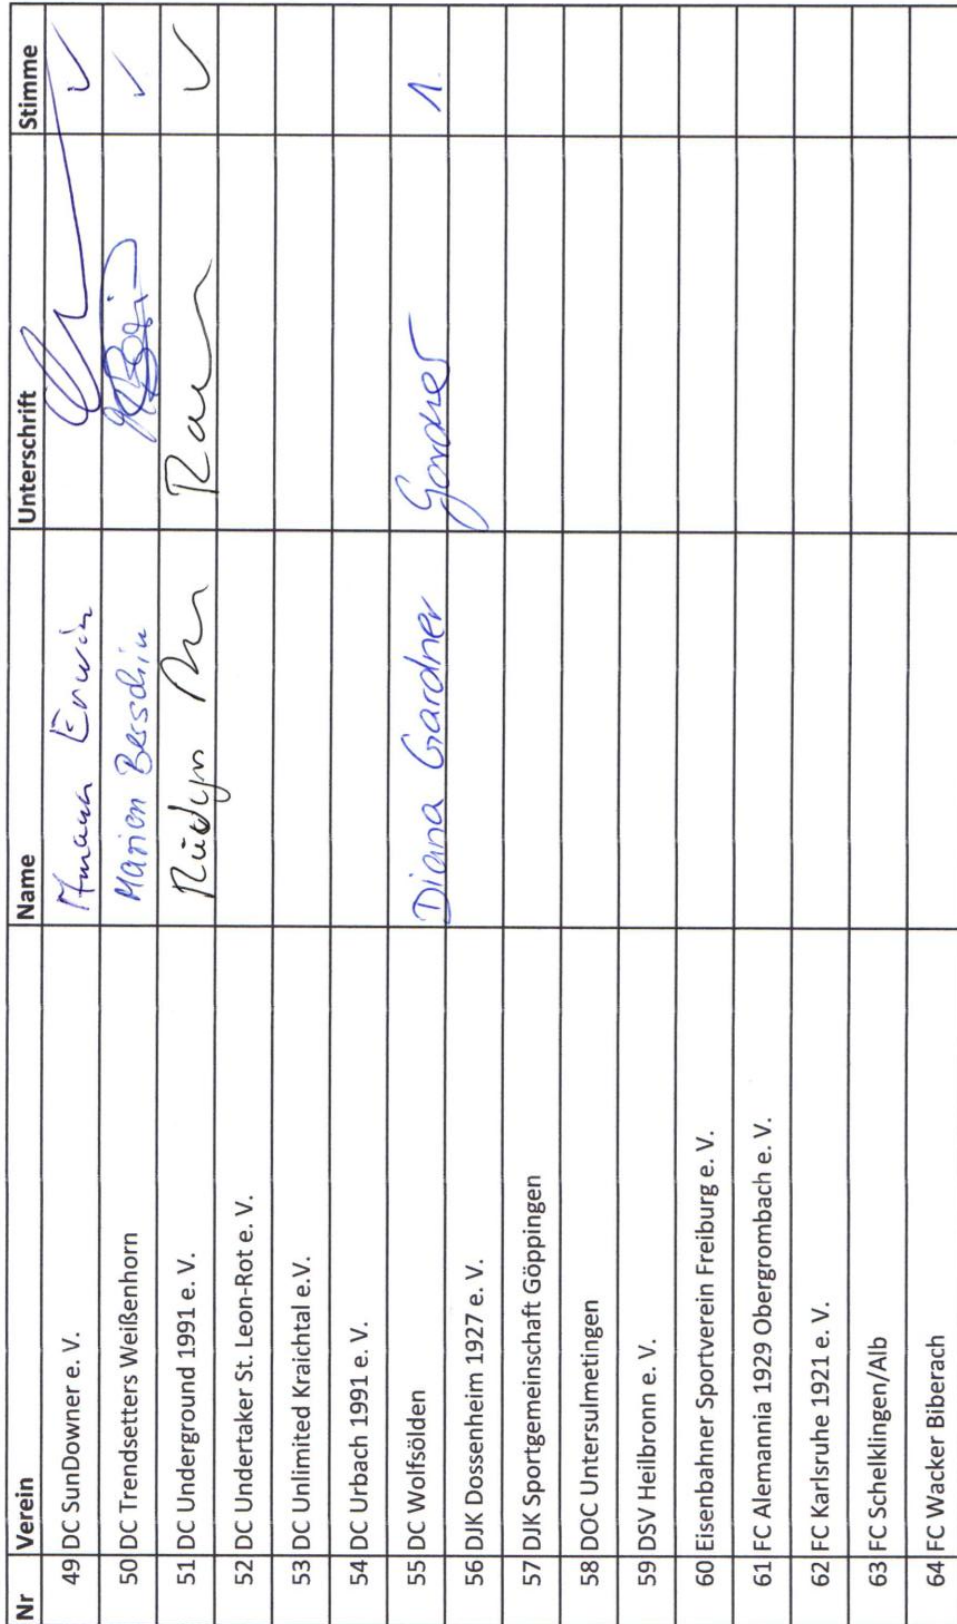 Nr Verein Name Unterschrift Stimme
49 DC SunDowner e. V. Amann Erwin ✓
50 DC Trendsetters Weißenhorn Marion Berschin ✓
51 DC Underground 1991 e. V. Rau ✓
52 DC Undertaker St. Leon-Rot e. V.
53 DC Unlimited Kraichtal e.V.
54 DC Urbach 1991 e. V.
55 DC Wolfsölden Diana Gardner Gardner 1.
56 DJK Dossenheim 1927 e. V.
57 DJK Sportgemeinschaft Göppingen
58 DOC Untersulmetingen
59 DSV Heilbronn e. V.
60 Eisenbahner Sportverein Freiburg e. V.
61 FC Alemannia 1929 Obergrombach e. V.
62 FC Karlsruhe 1921 e. V.
63 FC Schelklingen/Alb
64 FC Wacker Biberach